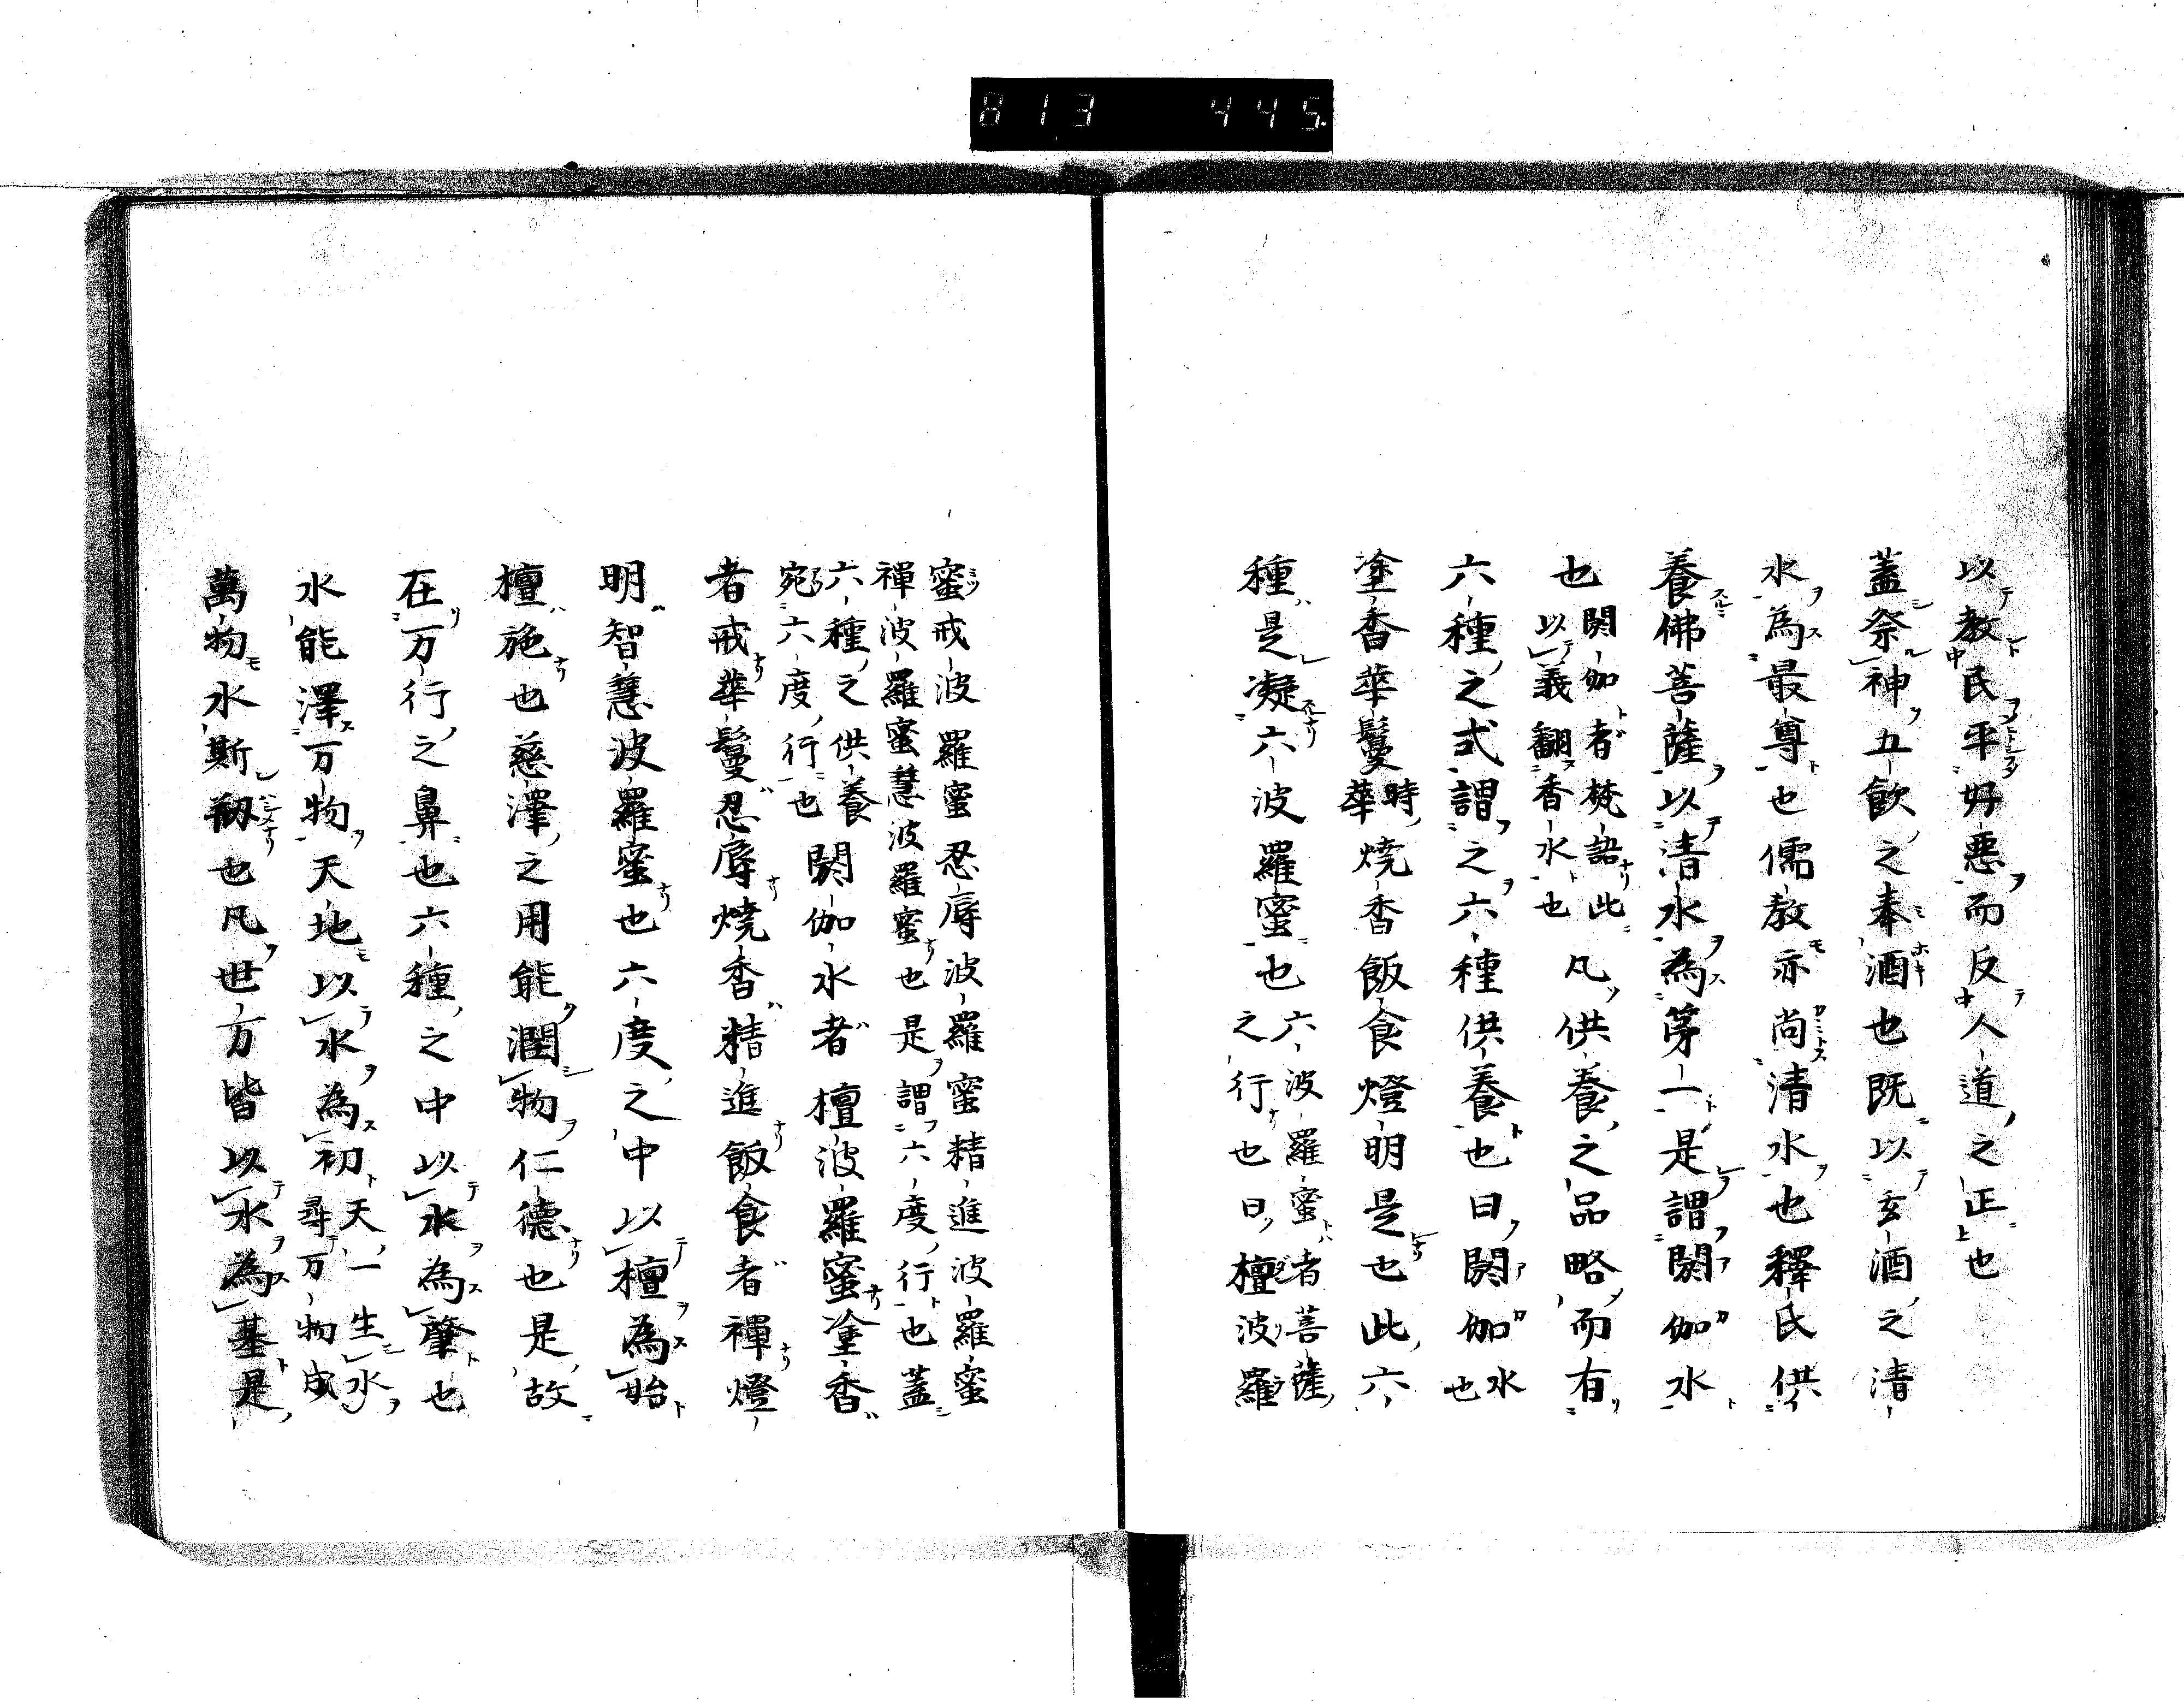 813 445
以教民平好悪而反人道之正也
蓋祭神五飲之奉酒也既以玄酒之清
水為最尊也儒教亦尚清水也釋氏供
養佛菩薩以清水為第一是謂閼伽水
也閼伽者梵語此以義翻香水也凡供養之品略而有
六種之式謂之六種供養也曰閼伽水也
塗香華鬘時華焼香飯食燈明是也此六
種是凝六波羅蜜也六波羅蜜者菩薩之行也曰檀波羅
蜜戒波羅蜜忍辱波羅蜜精進波羅蜜
禪波羅蜜慧波羅蜜也是謂六度行也蓋
六種之供養宛六度行也閼伽水者檀波羅蜜塗香
者戒華鬘忍辱焼香精進飯食者禪燈
明智慧波羅蜜也六度之中以檀為始
檀施也慈澤之用能潤物仁德也是故
在万行之鼻也六種之中以水為肇也
水能澤万物天地以水為初天一生水尋万物成
萬物水斯刱也凡世方皆以水為基是